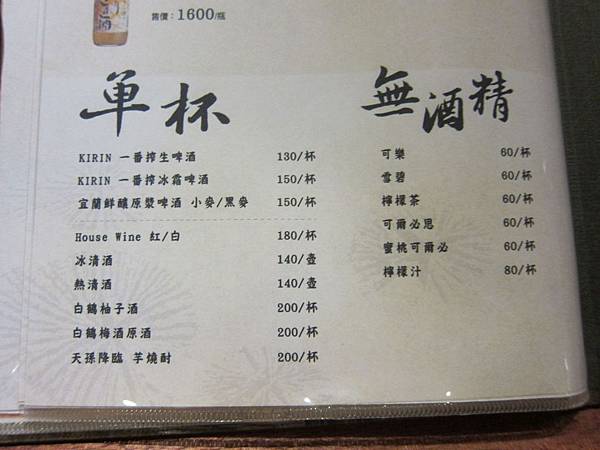 售價：1600/瓶
单杯
KIRIN 一番搾生啤酒 130/杯
KIRIN 一番搾冰霜啤酒 150/杯
宜蘭鮮釀原漿啤酒 小麥/黑麥 150/杯
House Wine 紅/白 180/杯
冰清酒 140/壺
熱清酒 140/壺
白鶴柚子酒 200/杯
白鶴梅酒原酒 200/杯
天孫降臨 芋燒酎 200/杯
無酒精
可樂 60/杯
雪碧 60/杯
檸檬茶 60/杯
可爾必思 60/杯
蜜桃可爾必 60/杯
檸檬汁 80/杯